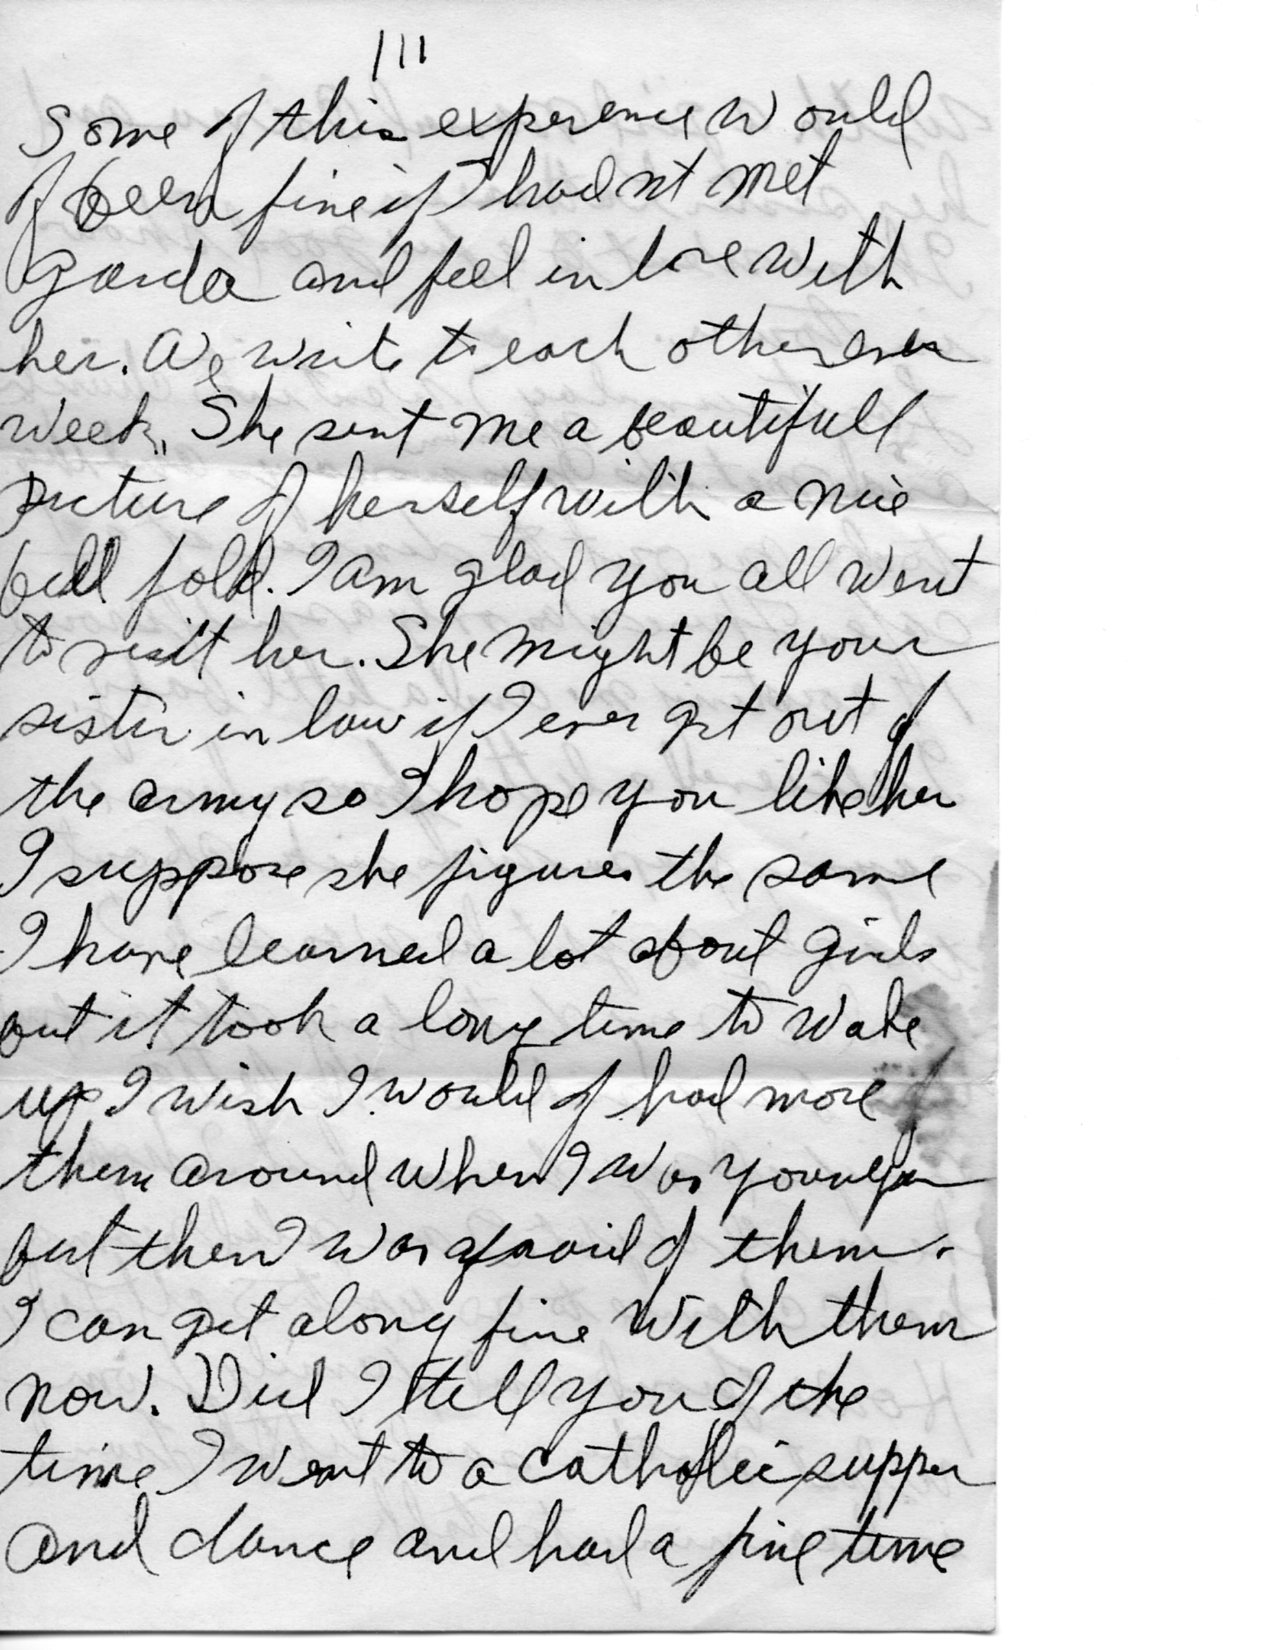 111
Some of this experience would
of been fine if I hadnt met
and feel in love with
her. We write to each other ever
week. She sent me a beautifull
picture of herself with a nice
bill fold. I am glad you all went
to visit her. She might be your
sister in law if I ever get out of
the army so I hope you like her
I suppose she figures the same
I have learned a lot about girls
but it took a long time to wake
up I wish I would of had more of
them around when I was younger
but then I was afraid of them.
I can get along fine with them
now. Did I tell you of the
time I went to a catholic supper
and dance and had a fine time